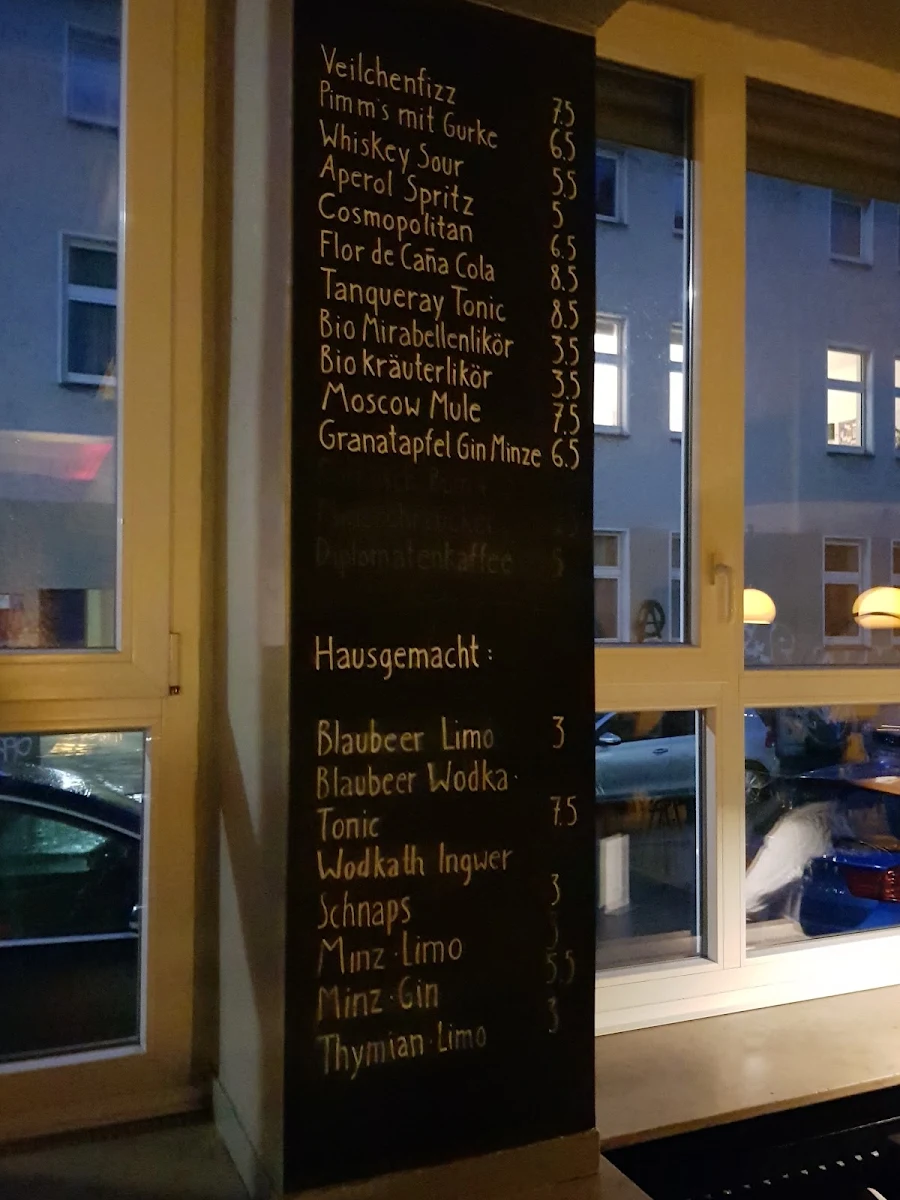 Veilchenfizz 7.5
Pimm's mit Gurke 6.5
Whiskey Sour 5.5
Aperol Spritz 5
Cosmopolitan 6.5
Flor de Caña Cola 8.5
Tanqueray Tonic 8.5
Bio Mirabellenlikör 3.5
Bio kräuterlikör 3.5
Moscow Mule 7.5
Granatapfel Gin Minze 6.5
Diplomatenkaffee
Hausgemacht :
Blaubeer Limo 3
Blaubeer Wodka·
Tonic 7.5
Wodkath Ingwer
Schnaps 3
Minz·Limo 3
Minz·Gin 5.5
Thymian·Limo 3